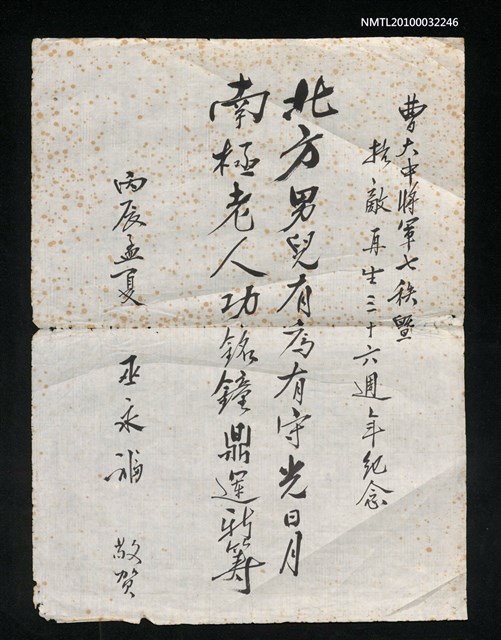 NMTL20100032246
曹大中將軍七秩暨
抗敵再生三十六週年紀念
北方男兒有為有守光日月
南極老人功銘鐘鼎運新籌
丙辰孟夏 巫永福 敬賀